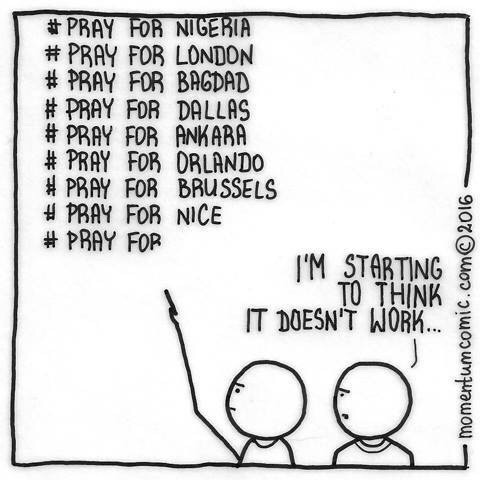 # PRAY FOR NIGERIA
# PRAY FOR LONDON
# PRAY FOR BAGDAD
# PRAY FOR DALLAS
# PRAY FOR ANKARA
# PRAY FOR ORLANDO
# PRAY FOR BRUSSELS
# PRAY FOR NICE
# PRAY FOR
I'M STARTING
TO THINK
IT DOESN'T WORK...
momentumcomic.com©2016